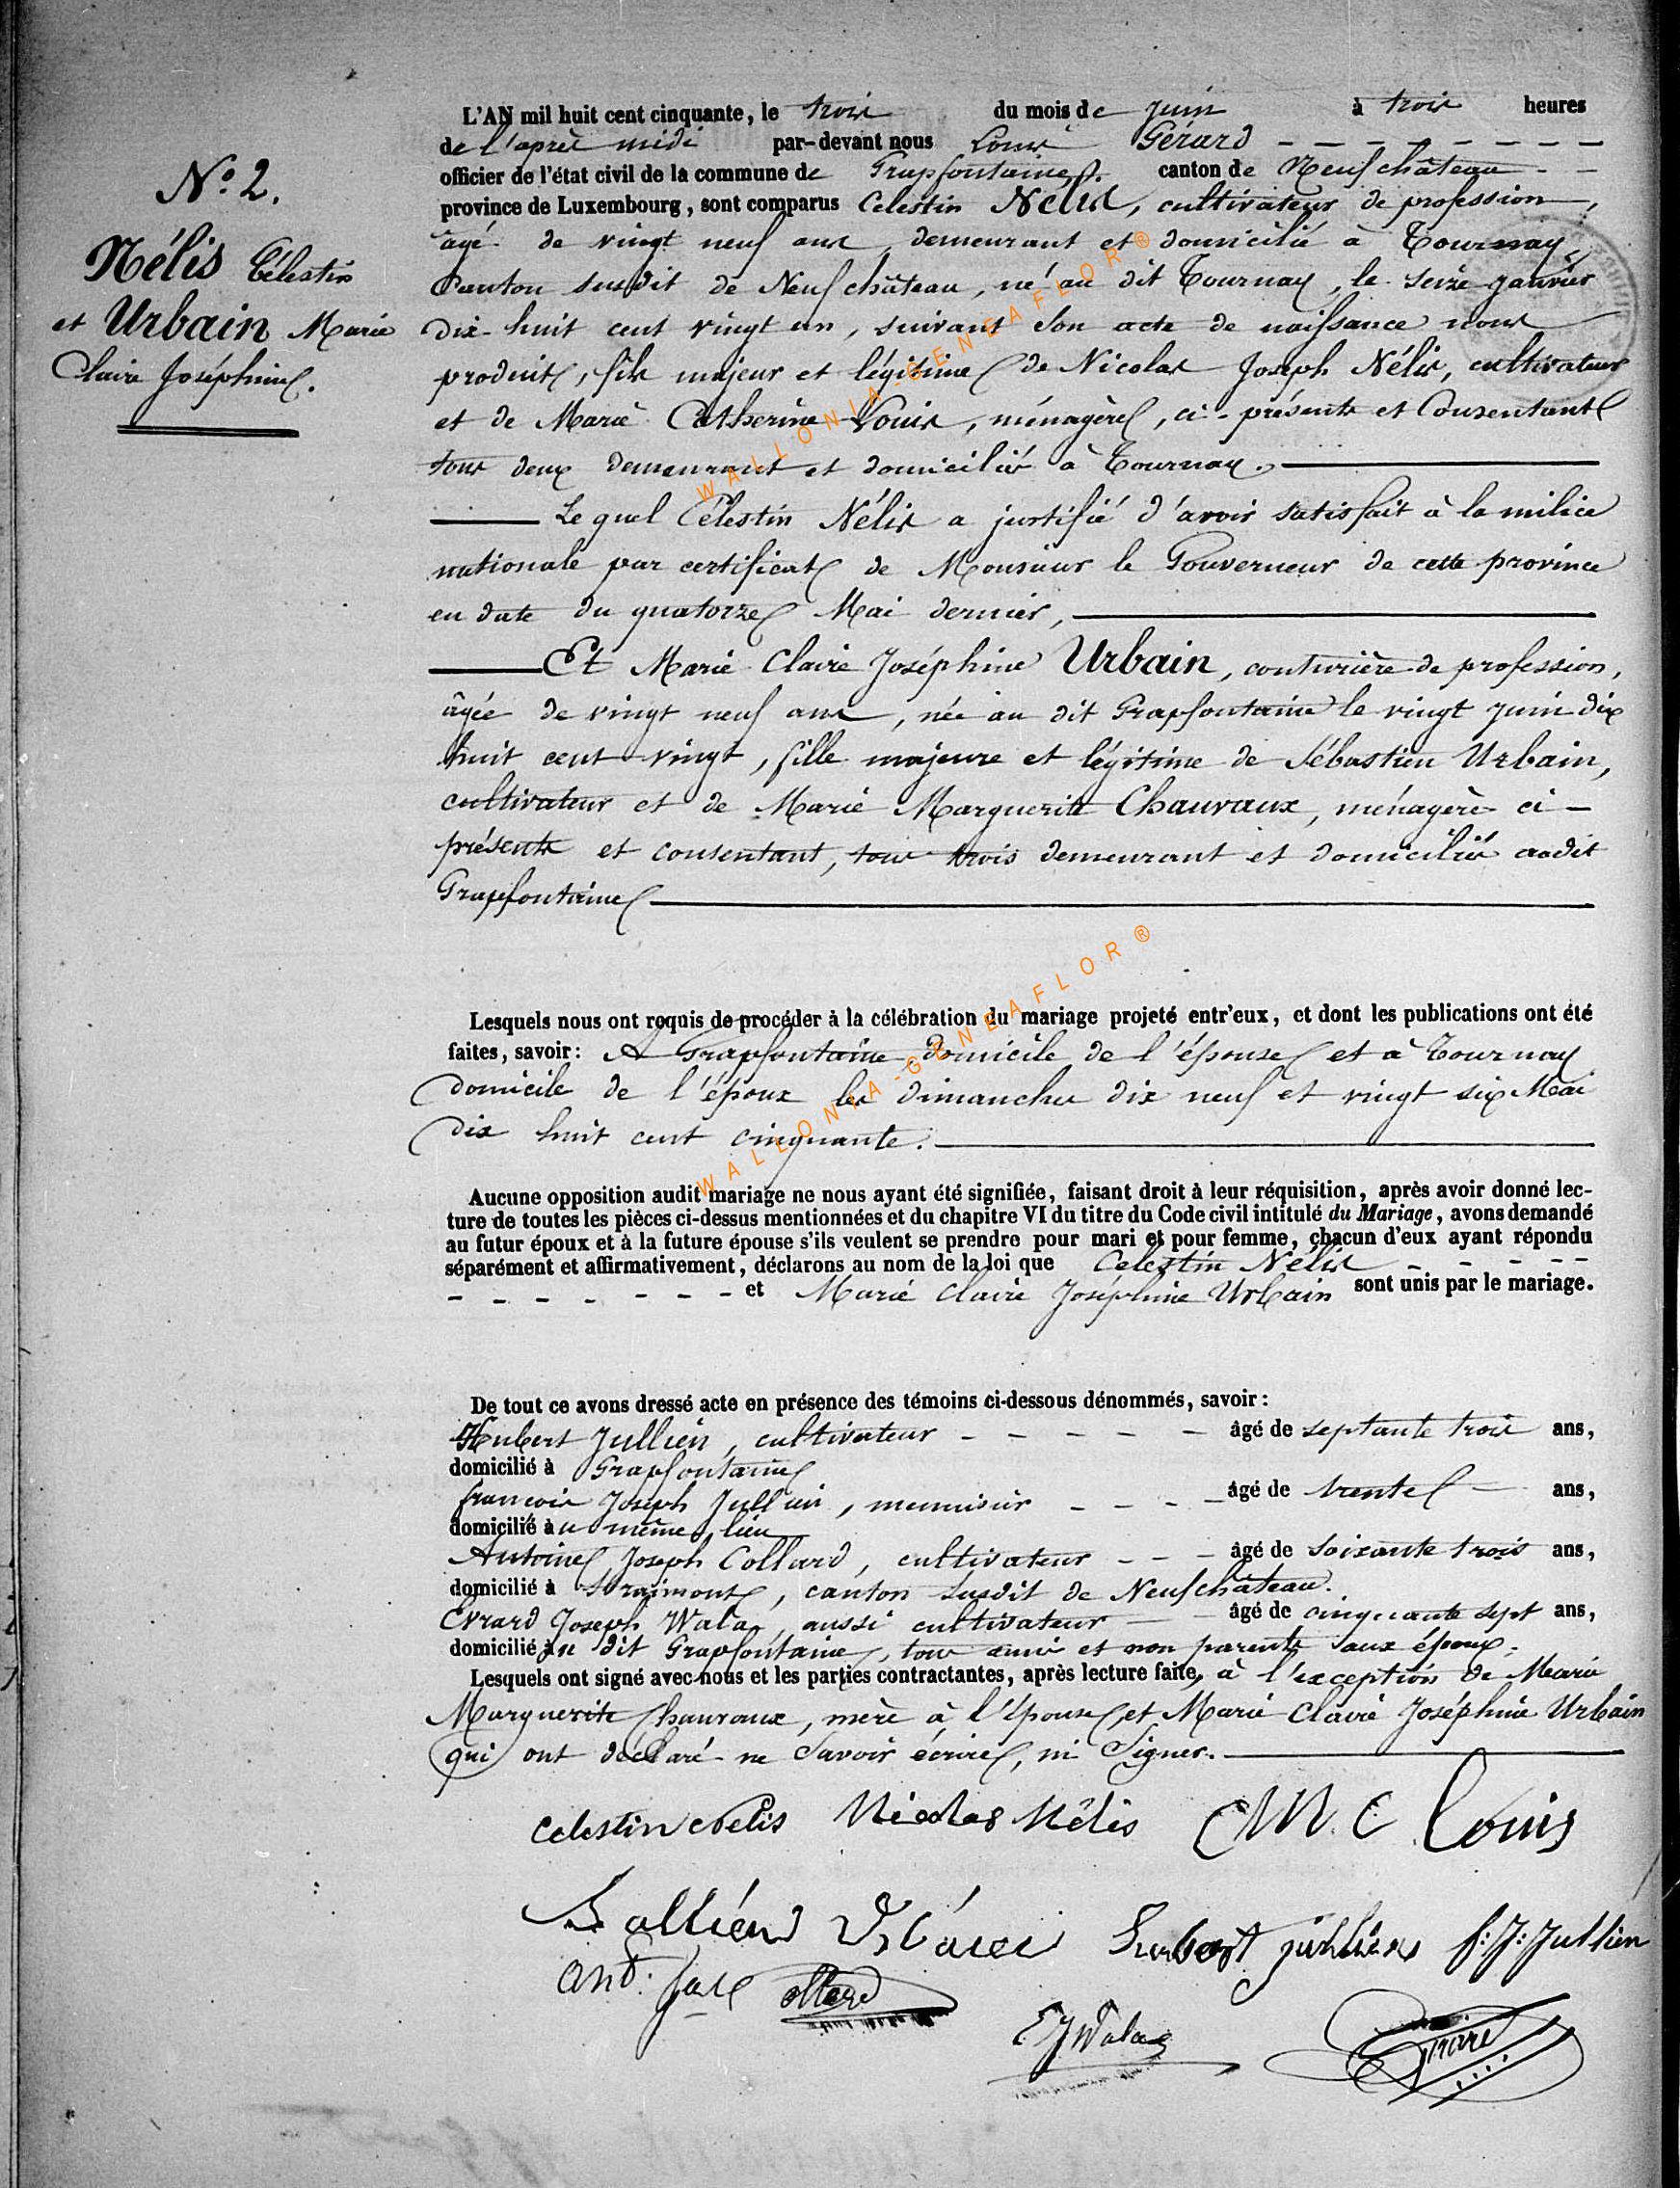 N.º 2.
Nélis Célestin
et Urbain Marie
Claire Joséphine.
L'AN mil huit cent cinquante, le trois du mois de juin à trois heures
de l'après midi par-devant nous Louis Gérard
officier de l'état civil de la commune de Grapfontaine, canton de Neufchâteau
province de Luxembourg, sont comparus Celestin Nélis, cultivateur de profession,
âgé de vingt neuf ans, demeurant et domicilié à Tournay,
Canton susdit de Neufchâteau, né au dit Tournay, le seize janvier
dix-huit cent vingt un, suivant son acte de naissance nous
produit, fils majeur et légitime de Nicolas Joseph Nélis, cultivateur
et de Marie Catherine Louis, ménagère, ci-présents et Consentant
tous deux demeurant et domiciliés à Tournay.
Le quel Célestin Nélis a justifié d'avoir satisfait à la milice
nationale par certificat de Monsieur le Gouverneur de cette province
en date du quatorze Mai dernier,
Et Marie Claire Joséphine Urbain, couturière de profession,
âgée de vingt neuf ans, née au dit Grapfontaine le vingt juin dix
huit cent vingt, fille majeure et légitime de Sébastien Urbain,
cultivateur et de Marie Marguerite Chauvaux, ménagère ci-
présents et consentant, tous trois demeurant et domiciliés audit
Grapfontaine
Lesquels nous ont requis de procéder à la célébration du mariage projeté entr'eux, et dont les publications ont été
faites, savoir: A Grapfontaine domicile de l'épouse et à Tournay
domicile de l'époux les dimanches dix neuf et vingt six Mai
dix huit cent cinquante.
Aucune opposition audit mariage ne nous ayant été signifiée, faisant droit à leur réquisition, après avoir donné lec-
ture de toutes les pièces ci-dessus mentionnées et du chapitre VI du titre du Code civil intitulé du Mariage, avons demandé
au futur époux et à la future épouse s'ils veulent se prendre pour mari et pour femme, chacun d'eux ayant répondu
séparément et affirmativement, déclarons au nom de la loi que Celestin Nélis
et Marie Claire Joséphine Urbain sont unis par le mariage.
De tout ce avons dressé acte en présence des témoins ci-dessous dénommés, savoir:
Hubert Jullien, cultivateur âgé de septante trois ans,
domicilié à Grapfontaine
françois Joseph Jullien, menuisier âgé de trente ans,
domicilié au même lieu
Antoine Joseph Collard, cultivateur âgé de soixante trois ans,
domicilié à Straimont, canton susdit de Neufchâteau.
Evrard Joseph Wala, aussi cultivateur âgé de cinquante sept ans,
domicilié au dit Grapfontaine, tous amis et non parents aux époux.
Lesquels ont signé avec nous et les parties contractantes, après lecture faite, à l'exception de Marie
Marguerite Chauvaux, mère à l'épouse, et Marie Claire Joséphine Urbain
qui ont déclaré ne savoir écrire, ni Signer.
Celestin Nelis Nicolas Nélis M C Louis
hubert jullien f: J: Jullien
ant. Jos collard
E J Wala
Gérard
WALLONIA-GENEAFLOR®
WALLONIA-GENEAFLOR®